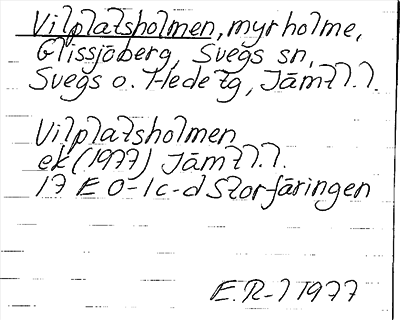 Vilplatsholmen, myrholme,
Glissjöberg, Svegs sn,
Svegs o. Hede tg, Jämtl. l.
Vilplatsholmen
ek (1977) Jämtl. l.
17 E 0-1 c-d Storfåringen
E. R-l 1977